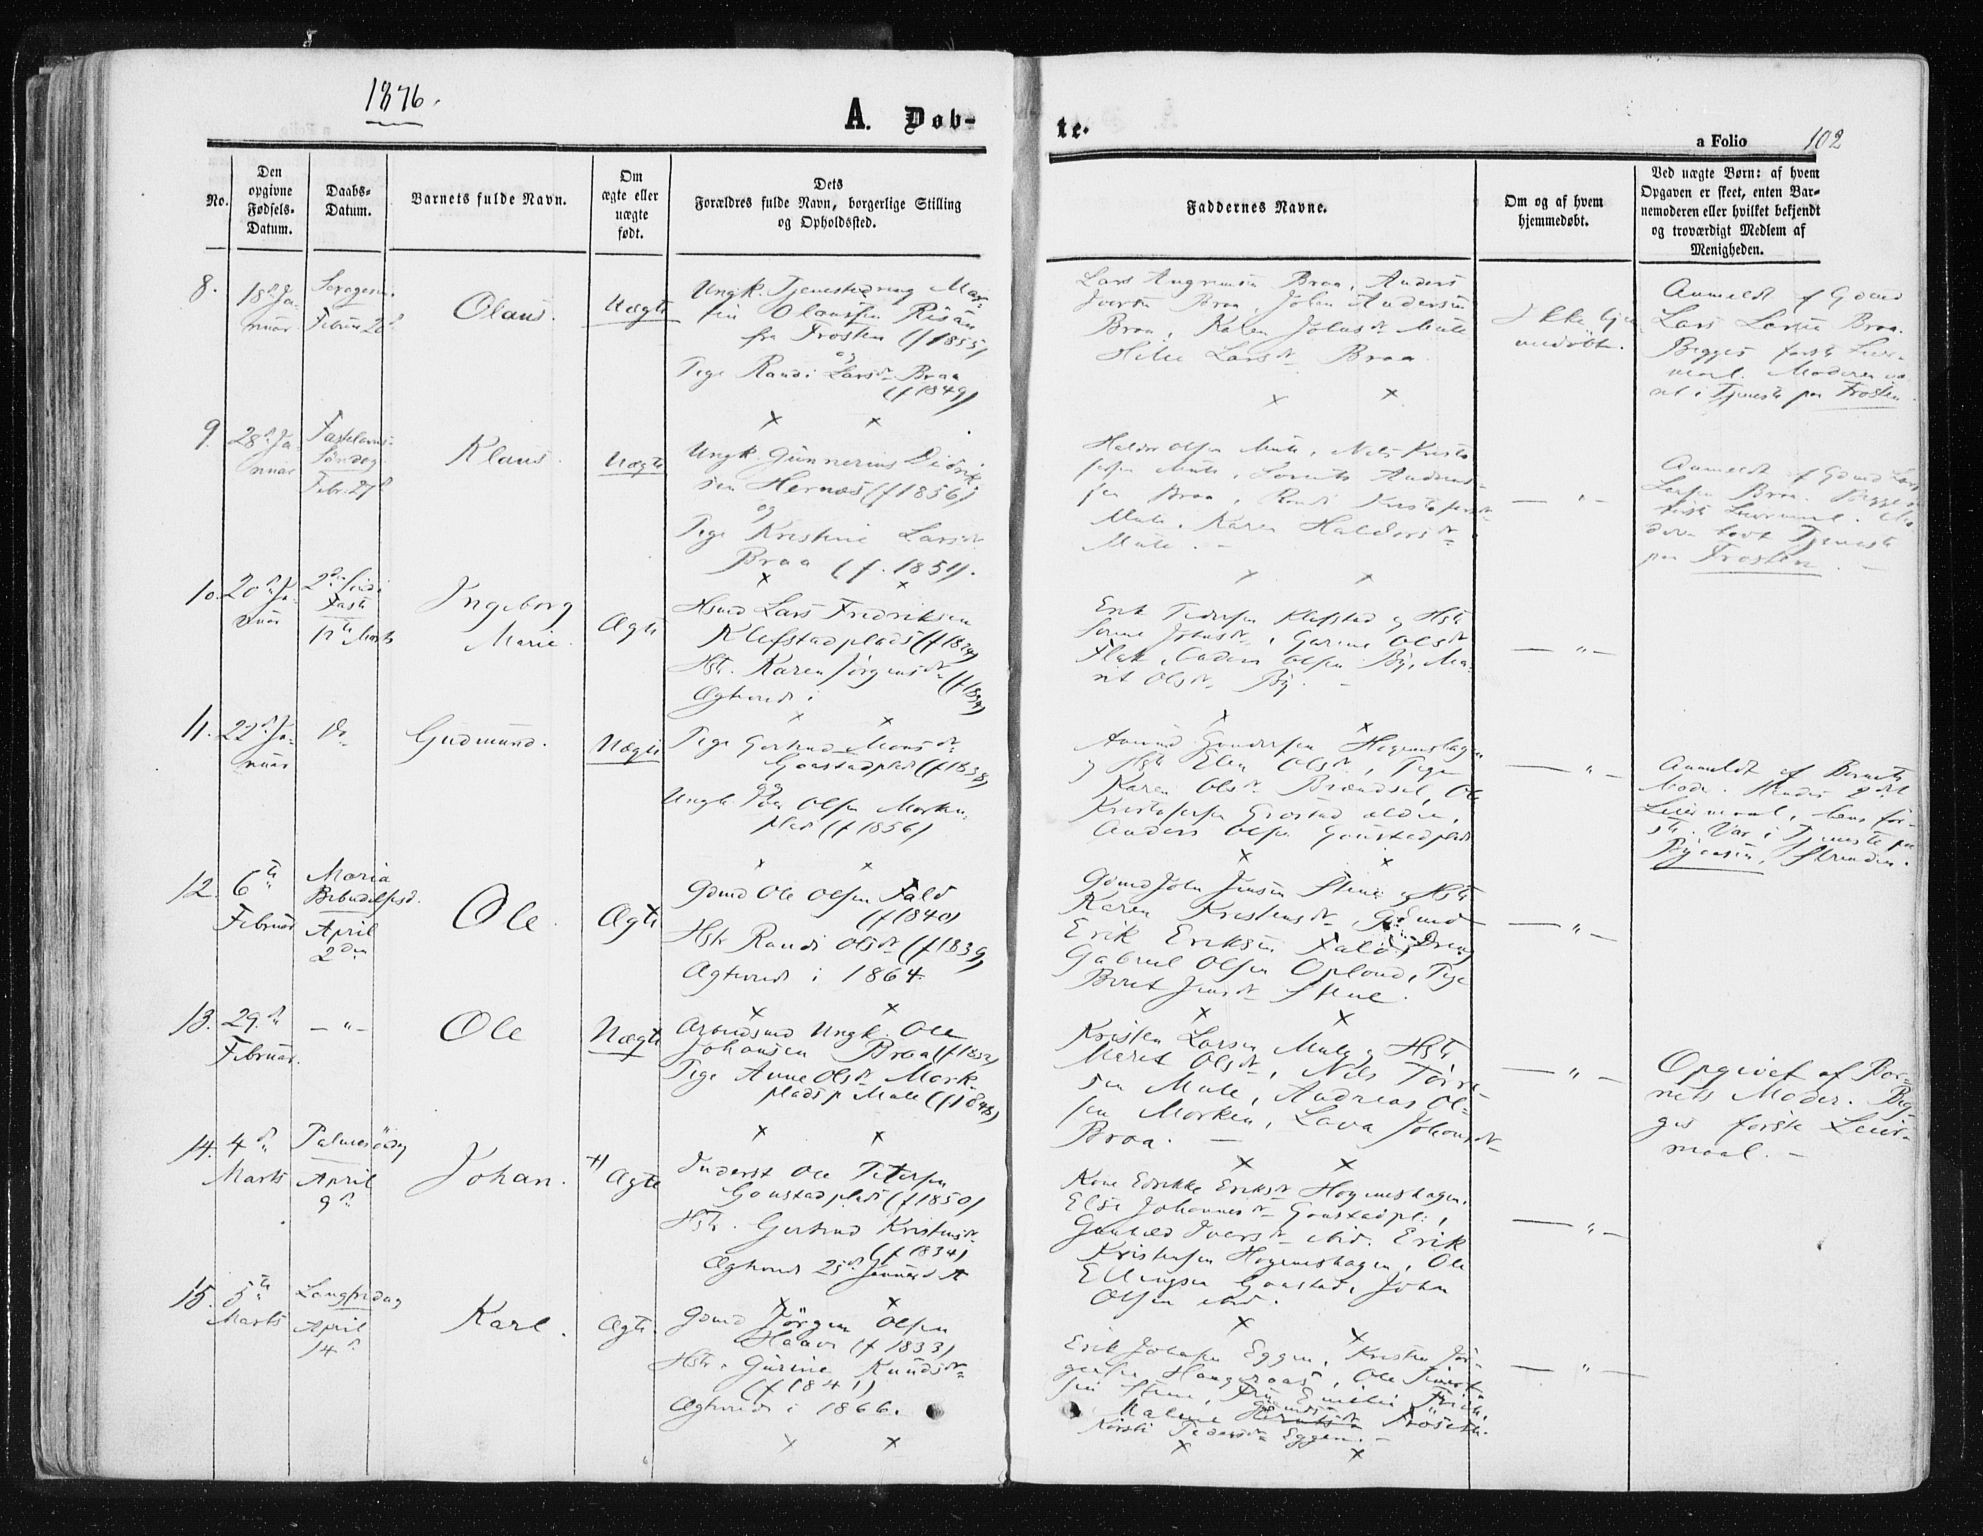 1876.
A. Døb-
te.
a Folio
102
No.
Den
opgivne
Fødsels-
Datum.
Daabs-
Datum.
Barnets fulde Navn.
Om
ægte eller
uægte
født.
Dets
Forældres fulde Navn, borgerlige Stilling
og Opholdssted.
Faddernes Navne.
Om og af hvem
hjemmedøbt.
Ved uægte Børn: af hvem
Opgaven er skeet, enten Bar-
nemoderen eller hvilket bekjendt
og troværdigt Medlem af
Menigheden.
8.
18de Ja-
nuar
Febru 20d
Olaus.
Uægte
Ungk. Tjenestedreng Mar-
tin Olaussen Risan
fra Frosten (f 1855)
og
Pige Randi Larsdr Braa
(f 1849)
Braa, Anders
Iversen Braa, Johan Andersen
Braa, Karen Johnsdr Mule
Larsdr Braa.
Ikke hje-
mmedøbt.
Anmeldt af Gdmd
Lars Larsen Braa.
Begges første Leier-
maal. Moderen va-
ret i Tjeneste paa Frosten
9.
28de Ja-
nuar
Fastelavns-
Søndag
Febr. 27d
Klaus.
Uægte
Ungk. Gunnerius Didrik-
sen Hernæs (f 1856)
og
Pige Kristine Larsdr
Braa (f. 1851).
Haldor Olsen Mule, Nils Kristo-
fersen Mule, Lorents Andreas-
sen Braa, Randi Kristofersdr
Mule, Karen Haldorsdr
Mule. -
— " —
Anmeldt af Gdmd Lars
Larsen Braa. Begges
første Leiermaal. Mo-
deren havt Tjeneste
paa Frosten. —
10.
20de Ja-
nuar
2den Sindi
Faste
12te Marts
Ingeborg
Marie.
Ægte
Hsmd Lars Fredriksen
Klefstadplads (f 1824)
Hst. Karen Jørgensdr
Ægteviede i
Erik Pedersen Klefstad og Hst.
Johnsdr, Gurine Olsdr
Flak, Anders Olsen By, Ma-
rit Olsdr By. —
— " —
11.
22de Ja-
nuar
Do
Gudmund.
Uægte
Pige Gertrud Monsdr
Gaustadplads (f 1838)
og
Ungk. Peder Olsen Morken-
plads (f 1856)
Amund Gundersen Hogenshagen
og Hst. Elen Olsdr, Pige
Karen Olsdr Brændsel, Ole
Kristofersen Grøstad ældre,
Anders Olsen Gaustadplads
— " —
Anmeldt af Barnets
Moder. Hendes 2det
Leiermaal, hans før-
ste. Var i Tjeneste paa
Byaasen, Strinden.
12.
6te
Februar
Maria
Bebudelsesd.
April
2den
Ole.
Ægte
Gdmd Ole Olsen Fald
(f 1840)
Hst. Randi Olsdr (f 1839)
Ægteviede i 1864.
Gdmd John Jensen Stene og Hst.
Karen Kristensdr, Gdmd
Erik Eriksen Fald, Dreng
Gabriel Olsen Opland, Pige
Berit Jensdr Stene.
— " —
13.
29de
Februar.
— " —
Ole
Uægte
Arbeidsmd Ungk. Ole
Johansen Braa (f 1852)
Pige Anne Olsdr Mork-
plads p Mule (f 1848)
Kristen Larsen Mule og Hst.
Marit Olsdr, Nils Torre-
sen Mule, Andreas Ol-
sen Morken, Lava Johansdr
Braa. —
— " —
Opgivet af Bar-
nets Moder. Beg-
ges første Leier-
maal. —
14.
4de
Marts
Palmesøndag
April
9de
Johan.
Ægte
Inderst Ole Petersen
Gaustadplads (f 1850)
Hst. Gertrud Kristensdr
(f 1834)
Ægteviede 25de Januar d. A.
Kone Edrikke Eriksdr Hogenshagen,
Else Johannesdr Gaustadpl.,
Gunhild Iversdr ibid. Erik
Kristensen Hogenshagen, Ole
Ellingsen Gaustad, John
Olsen ibid.
— " —
15.
5te
Marts
Langfredag
April
14de
Karl.
Ægte
Gdmd Jørgen Olsen
Haave (f 1833)
Hst. Gurine Knudsdr
(f 1841)
Ægteviede i 1866.
Erik Johnsen Eggen, Kristen Jør-
gensen Haugeraas, Ole
sen Stene, Pige Emilie
Malene Frøseth.
Kirsti Pedersdr Eggen. —
— " —